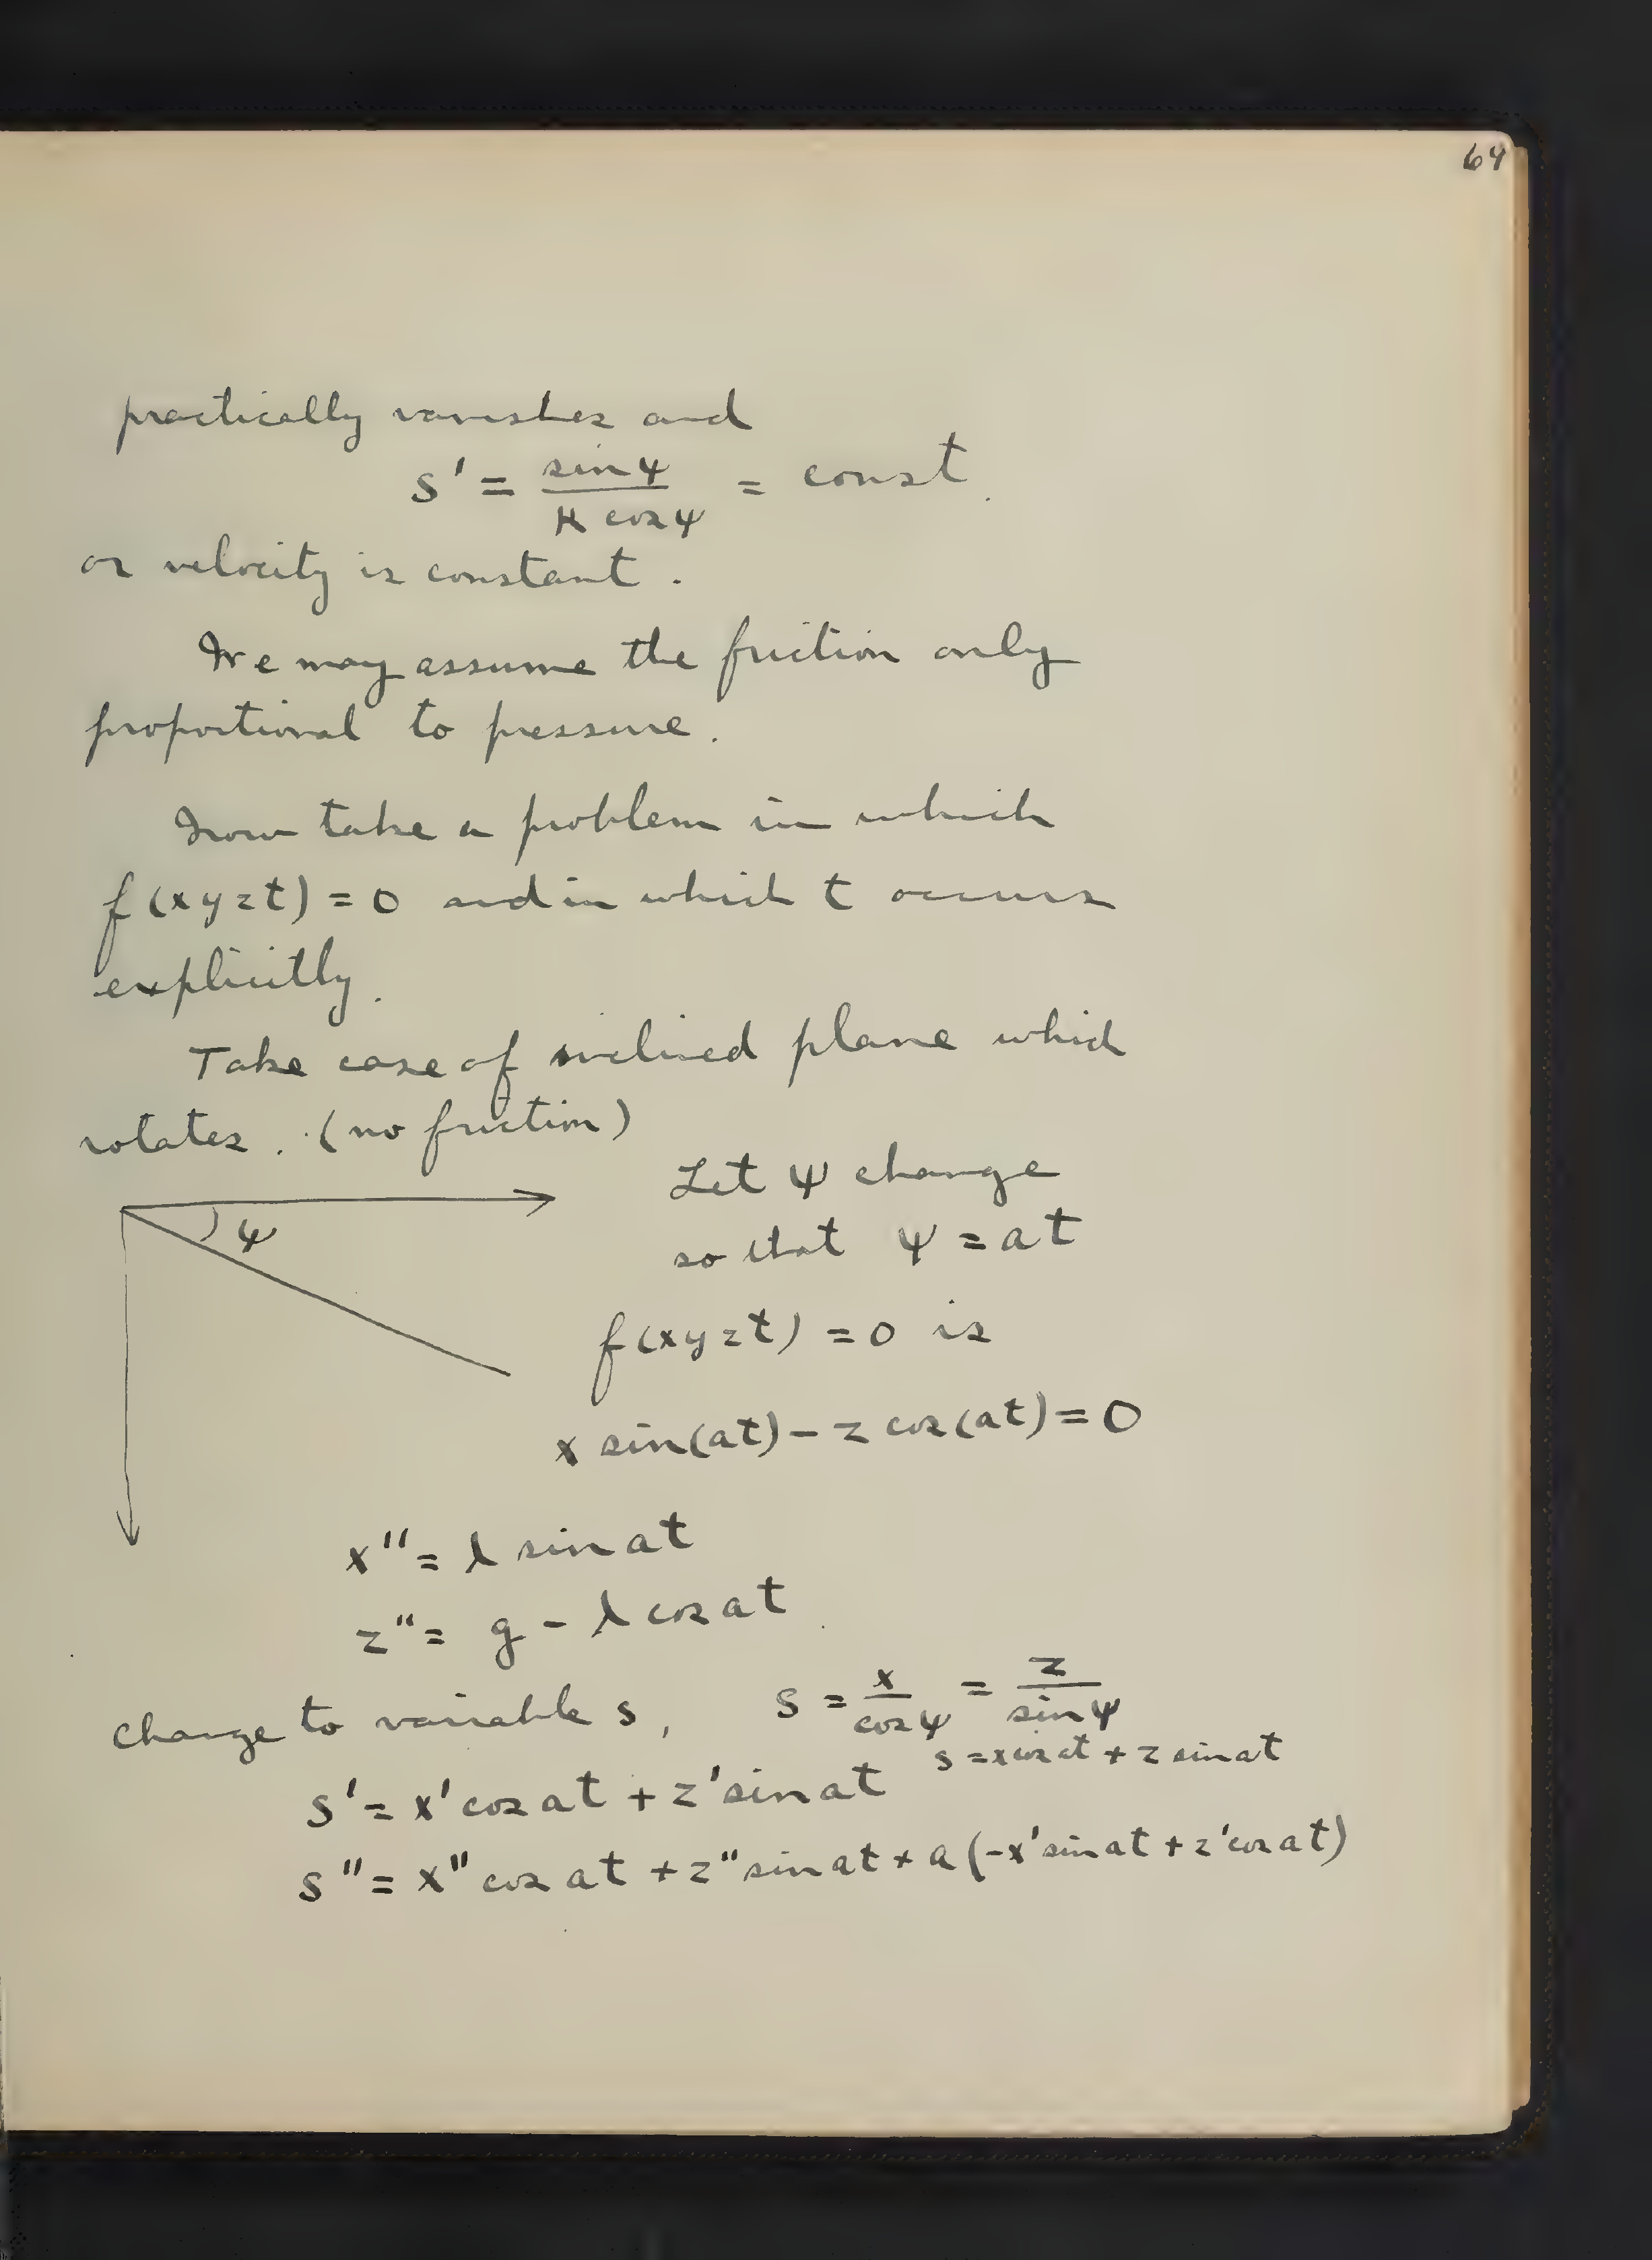 64
practically vanishes and
s' = sin ψ / κ cos ψ = const.
or velocity is constant.
We may assume the friction only
proportional to pressure.
Now take a problem in which
f(xyzt) = 0 and in which t occurs
explicitly.
Take case of inclined plane which
rotates. (no friction)
Let ψ change
ψ
so that ψ = at
f(xyzt) = 0 is
x sin(at) - z cos(at) = 0
x'' = λ sin at
z'' = g - λ cos at
Change to variable s, s = x / cos ψ = z / sin ψ
s = x cos at + z sin at
s' = x' cos at + z' sin at
s'' = x'' cos at + z'' sin at + a(-x' sin at + z' cos at)